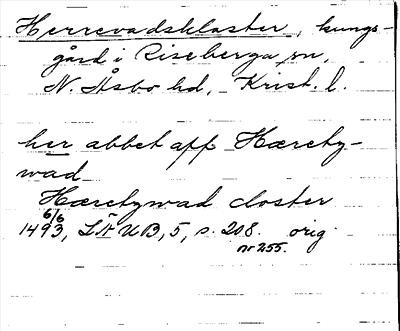 Herrevadskloster, kungs-
gård i Riseberga sn,
N. Åsbo hd, Krist. l.
her abbet aff Hæretz-
wad
Hæretzwad closter
6/6
1493, LÄUB, 5, s. 208. orig.
nr 255.